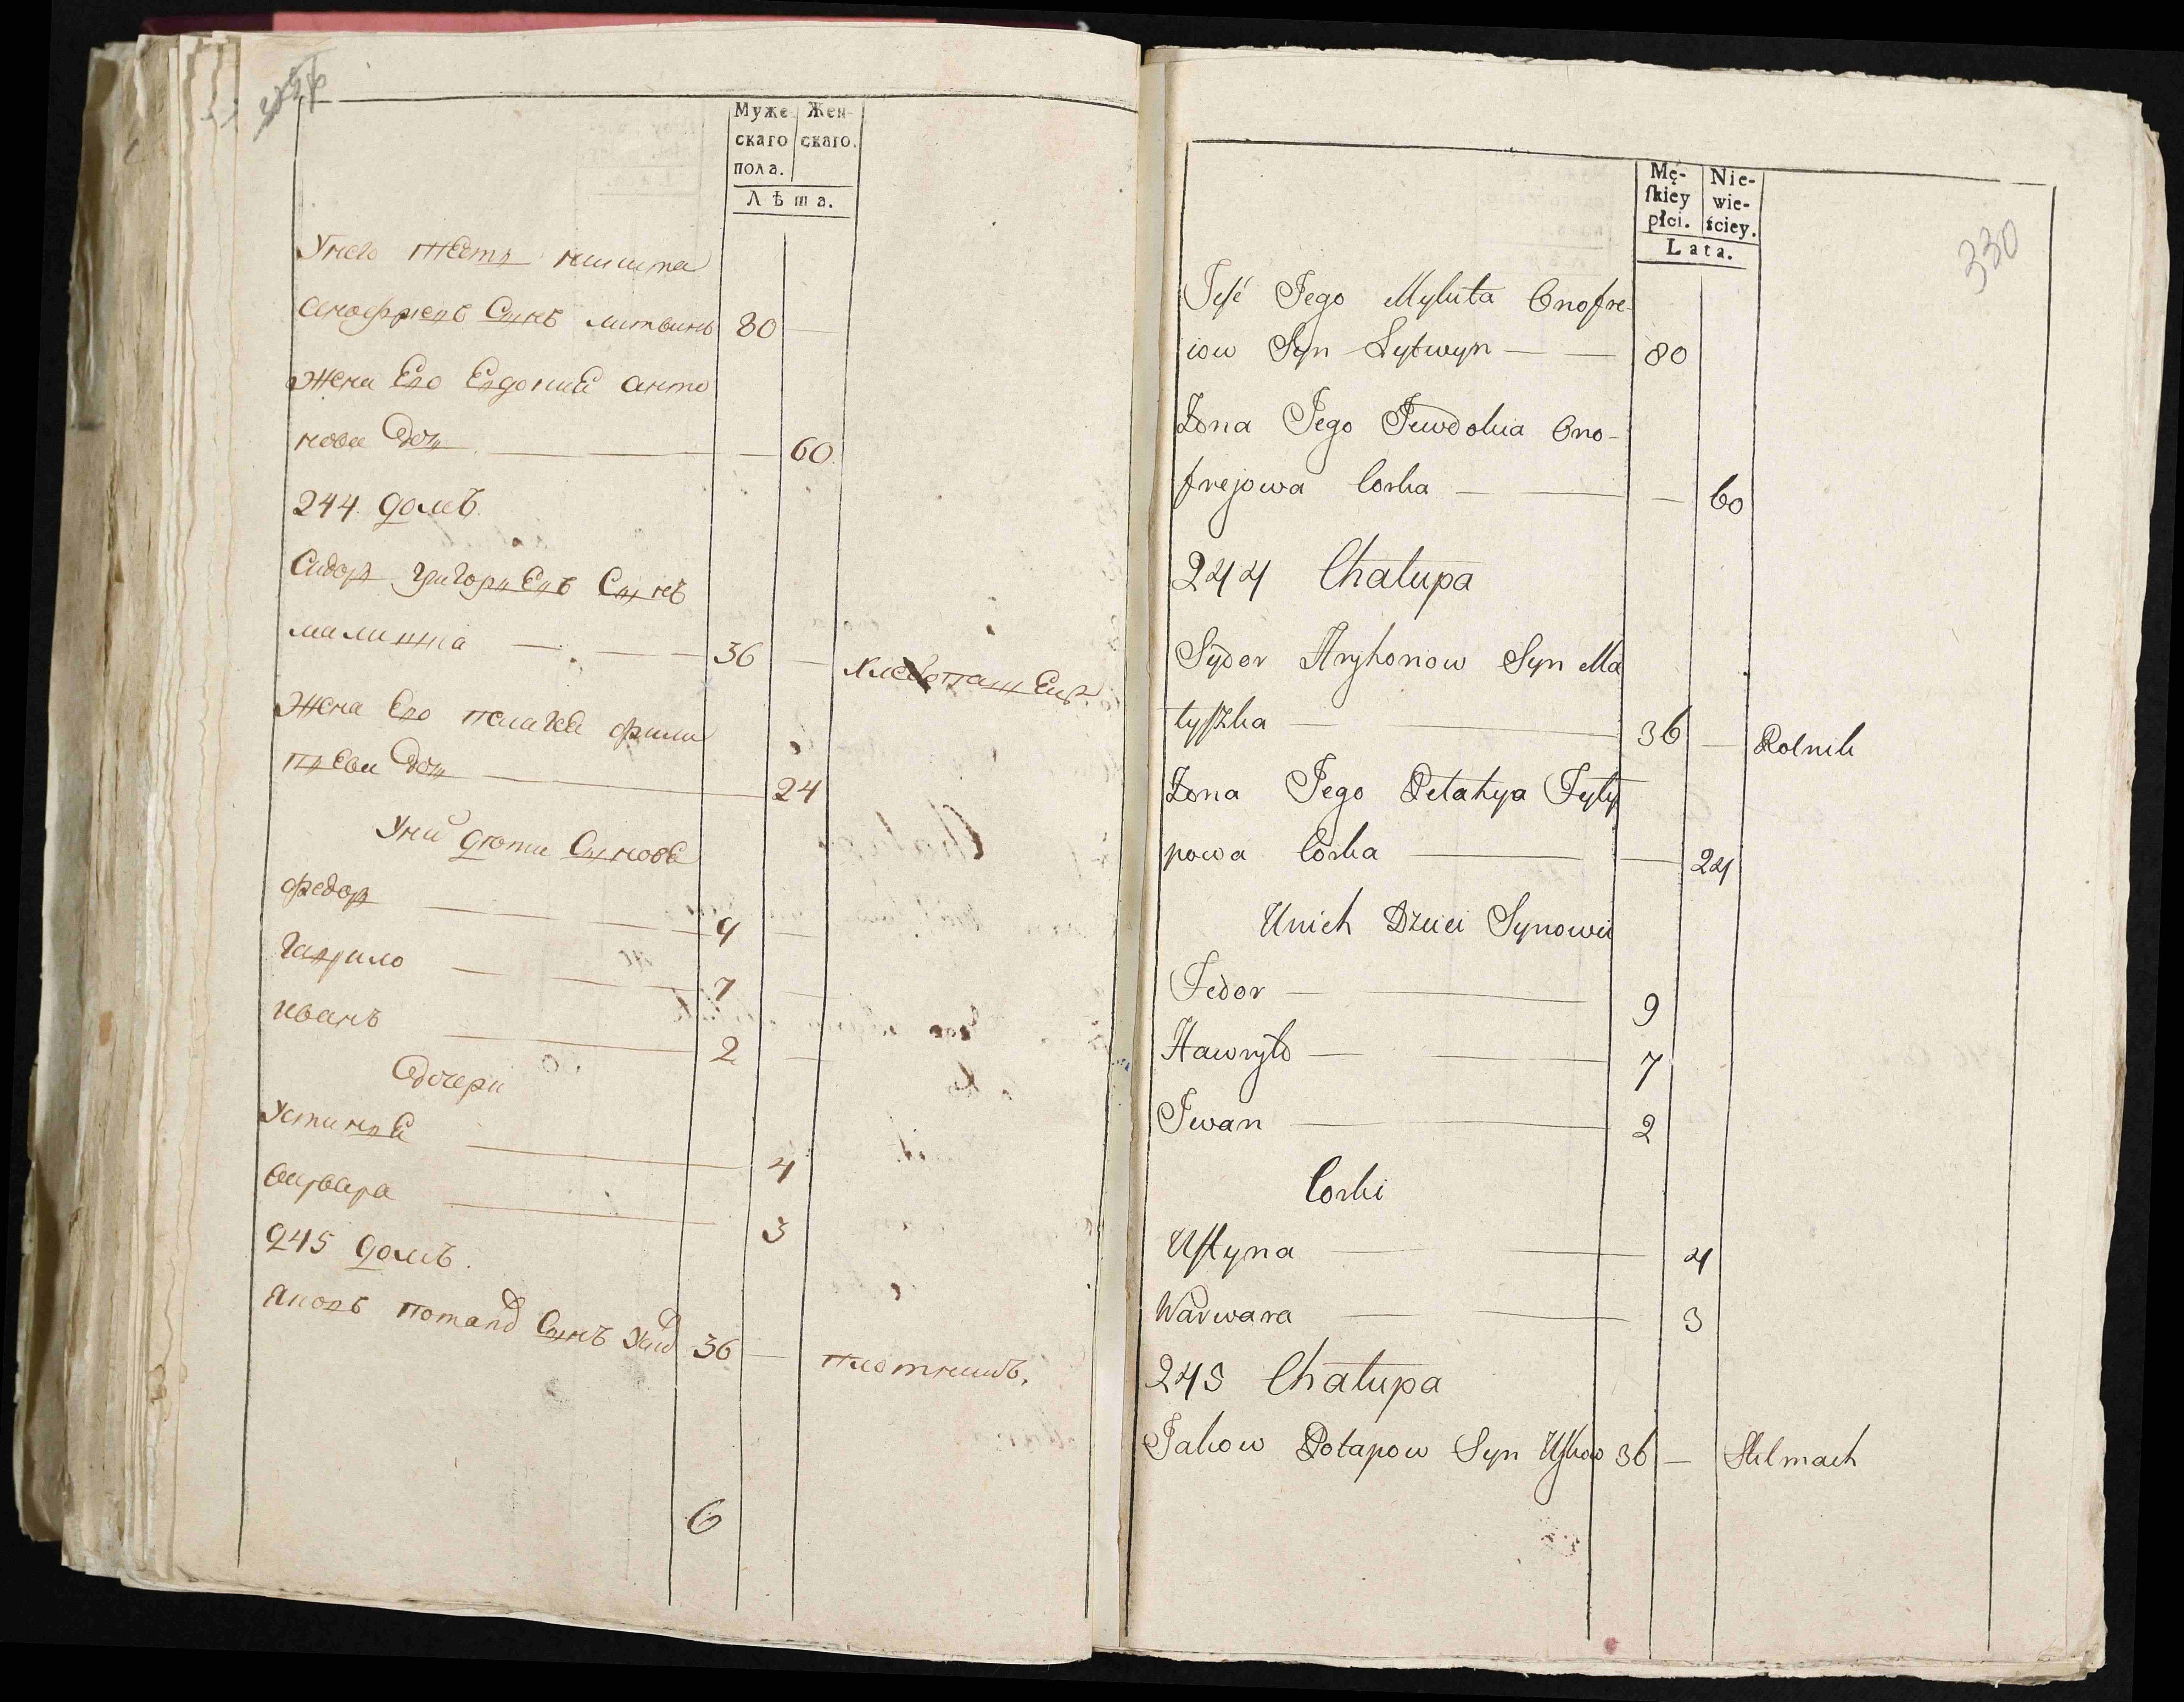 Муже Жен-
скаго скаго.
пола.
Лѣта.
Унего тесть микита
анофріевъ Сынъ литвинъ 80 —
жена Его Евдокиа анто
нова доч — — 60
244 домъ
Сидор григориевъ Сынъ
— 36 —
жена Его пелагеа фили
пова доч — 24
Уних дѣти Синовѣ
федор — 9 —
гаврило — 7 —
иванъ — 2 —
дочери
Устинѣа — 4
варвара — 3
245 домъ.
яковъ потапов Сынъ 36 — плотникъ.
6
Mę- Nie-
ſkiey wie-
płci. ściey.
Lata.
330
Teść Jego Mykita Onofre-
iow Syn Lytwyn — — 80
Żona Jego Jewdokia Ono-
frejowa Corka — — — 60
244 Chałupa
Sydor Hryhorow Syn Ma
tyſzka — 36 — Rolnik
Żona Jego Pełahya Fyły
powa Corka — — 24
Unich Dzieci Synowie
Fedor — 9
Hawryło — — 7
Iwan — — 2
Corki
Uſtyna — — 4
Warwara — — 3
245 Chałupa
Jakow Potapow Syn Uſkow 36 — Stelmach